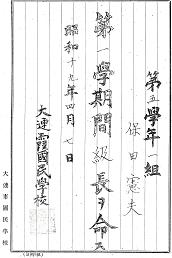 第五學年一組
保田憲夫
第一學期間級長ヲ命ス
昭和十九年四月七日
大連霞國民學校
大連霞國民學校